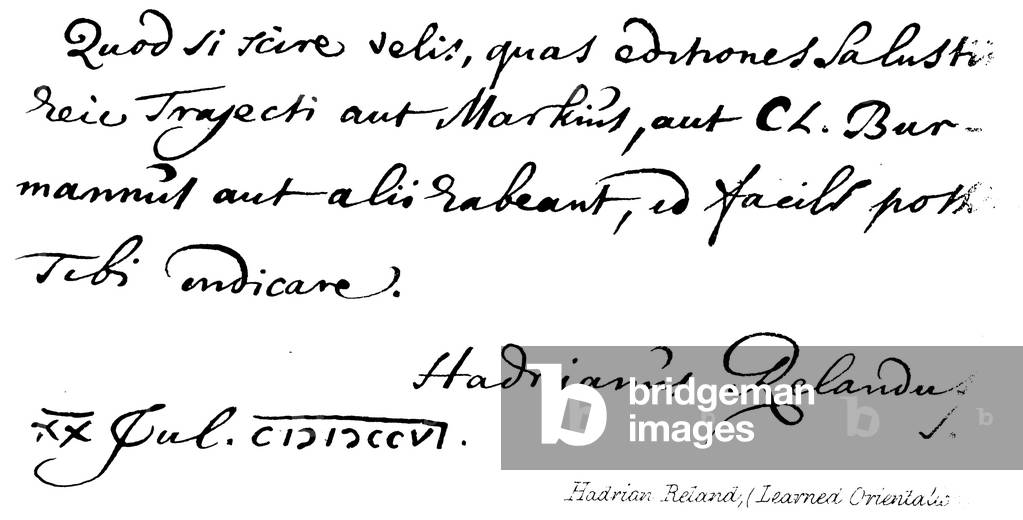 Quod si scire velis, quas editiones Salustii
heic Trajecti aut Markius, aut CL. Bur-
mannus aut alii habeant, id facile
Tibi indicare.
Hadrianus Relandus
XX Jul. CIƆIƆCCVI.
bridgeman
images
Hadrian Reland, (Learned Orientalis